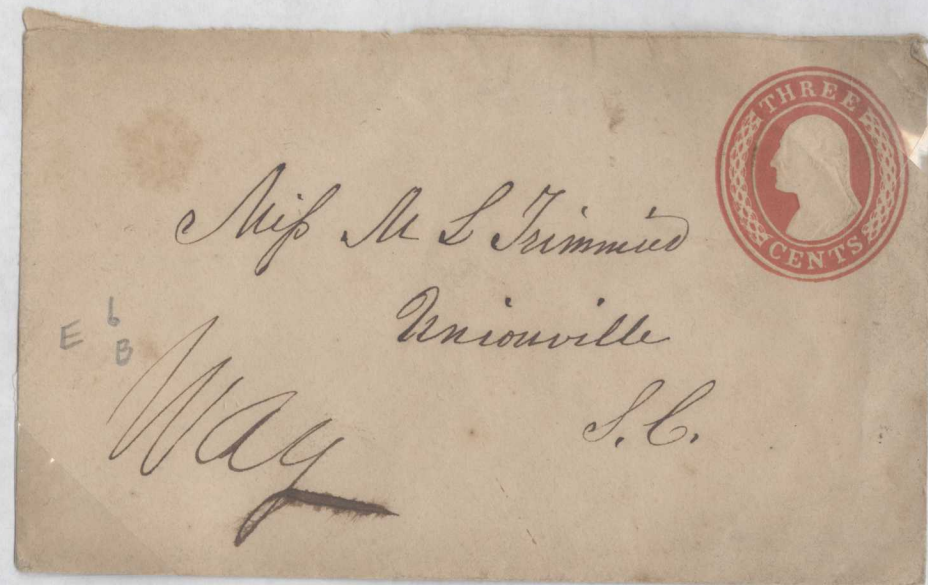 THREE
CENTS
Miss M L Trimmier
Unionville
S.C.
Way
E 6
B